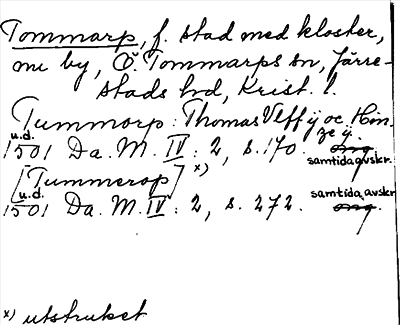 Tommarp, f. stad med kloster,
nu by, Ö. Tommarps sn, Järre-
stads hd, Krist. l.
Tummorp: Thomas Ulff ÿ oc Hin-
ze ÿ.
u.d.
1501 Da. M. IV: 2, s. 170. orig.
samtida avskr.
[Tummerop] x)
u.d. samtida avskr.
1501 Da. M. IV: 2, s. 272. orig.
x) utstruket